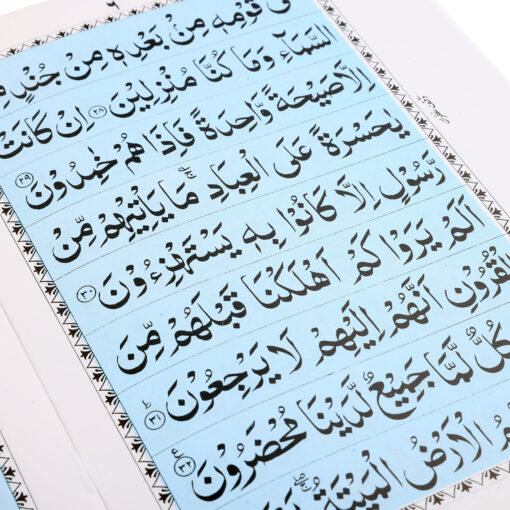 ٦
قَوْمِهٖ مِنْۢ بَعْدِهٖ مِنْ جُنْدٍ
السَّمَآءِ وَمَا كُنَّا مُنْزِلِيْنَ ﴿٢٨﴾ اِنْ كَانَتْ
اِلَّا صَيْحَةً وَّاحِدَةً فَاِذَا هُمْ خٰمِدُوْنَ ﴿٢٩﴾
يٰحَسْرَةً عَلَى الْعِبَادِ ۚ مَا يَاْتِيْهِمْ مِّنْ
رَّسُوْلٍ اِلَّا كَانُوْا بِهٖ يَسْتَهْزِءُوْنَ ﴿٣٠﴾
اَلَمْ يَرَوْا كَمْ اَهْلَكْنَا قَبْلَهُمْ مِّنَ
الْقُرُوْنِ اَنَّهُمْ اِلَيْهِمْ لَا يَرْجِعُوْنَ ﴿٣١﴾
كُلٌّ لَّمَّا جَمِيْعٌ لَّدَيْنَا مُحْضَرُوْنَ ﴿٣٢﴾
الْاَرْضُ الْمَيْتَةُ